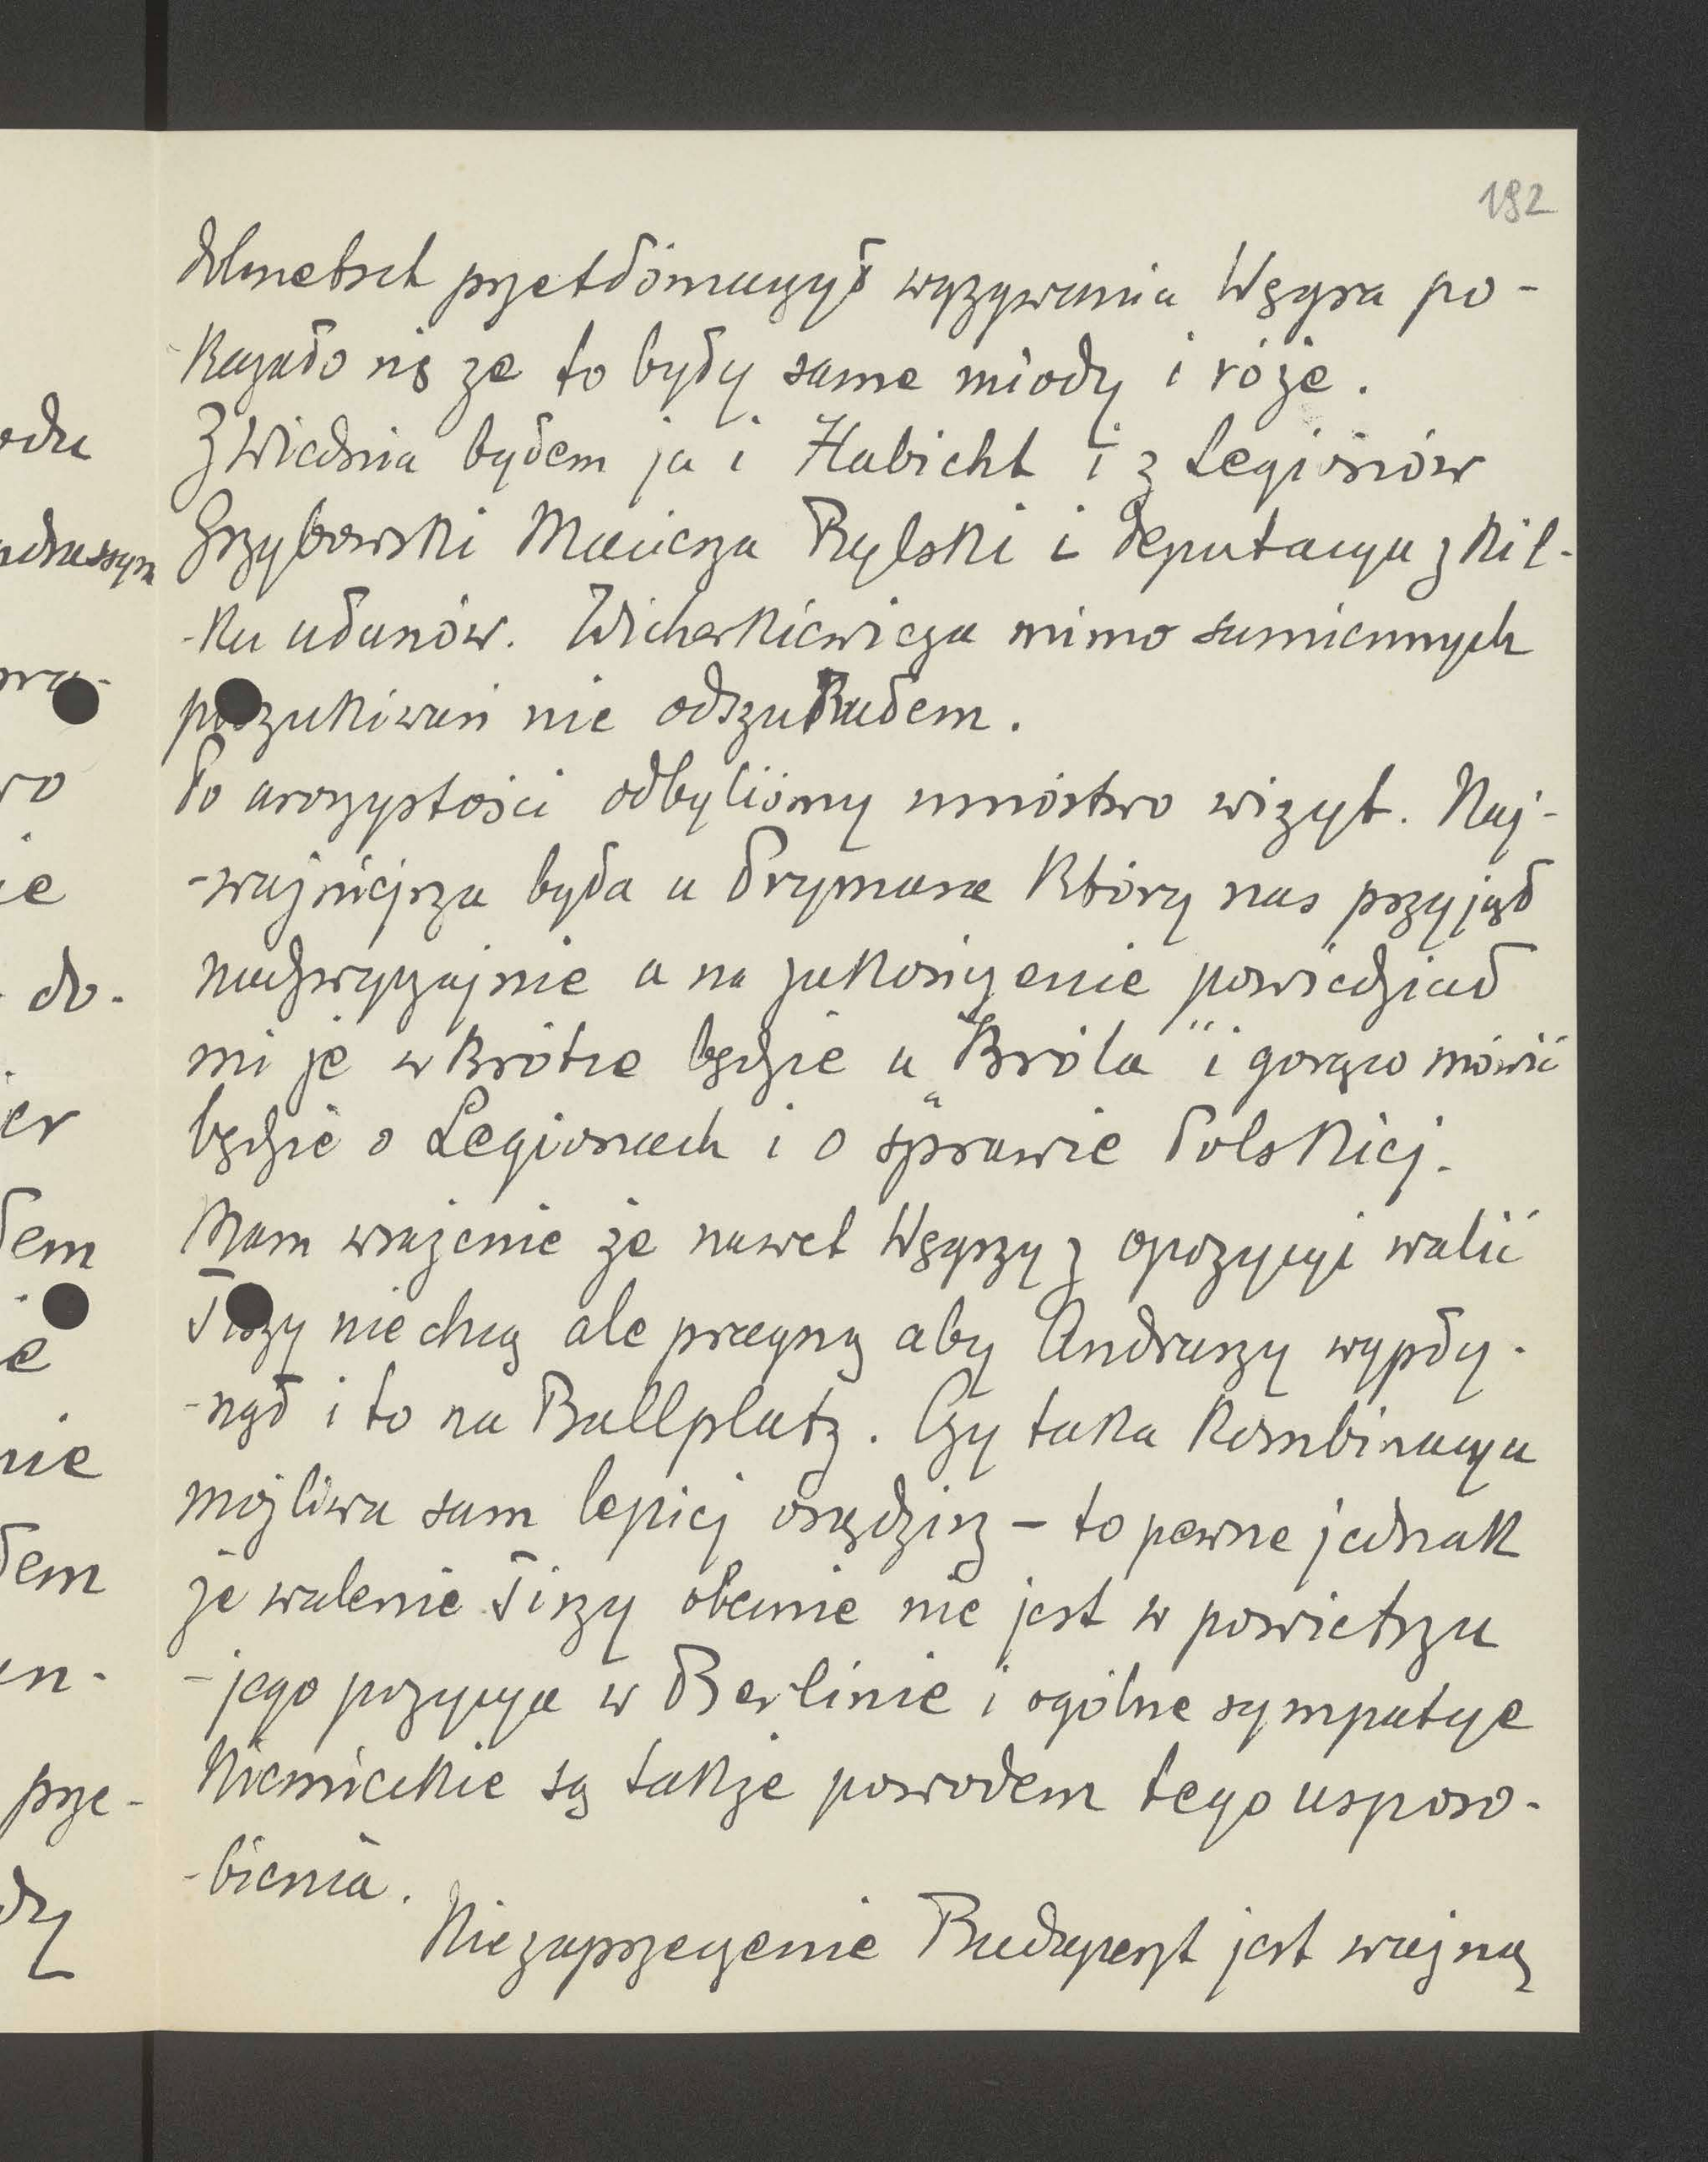 192
dolmetsch przetłómaczył wyzywania Węgra po-
kazało się że to były same miody i róże.
Z Wiednia byłem ja i Habicht i z Legionów
Grzybowski Rylski i deputacya z kil-
-ku ułanów. Wicherkiewicza mimo sumiennych
poszukiwań nie odszukałem.
Po uroczystości odbyliśmy mnóstwo wizyt. Naj-
-ważniejsza była u Prymasa który nas przyjął
nadzwyczajnie a na zakończenie powiedział
mi że wkrótce będzie u "Króla" i gorąco mówić
będzie o Legionach i o sprawie Polskiej.
Mam wrażenie że nawet Węgrzy z opozycyi walić
Tiszy nie chcą ale pragną aby Andraszy wypły-
-nął i to na Ballplatz. Czy taka kombinacya
możliwa sam lepiej osądzisz – to pewne jednak
że walenie Tiszy obecnie nie jest w powietrzu
- jego pozycya w Berlinie i ogólne sympatye
Niemieckie są także powodem tego usposo-
-bienia.
Niezaprzeczenie Budapeszt jest ważną
odu
ndrassym
pra-
ro
ie
do-
er
łem
e
nie
łem
prze-
dzy